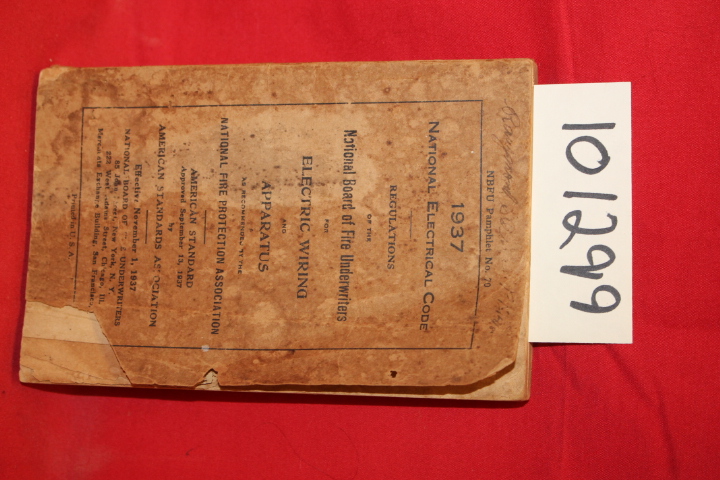 NBFU Pamphlet No. 70
1937
NATIONAL ELECTRICAL CODE
REGULATIONS
OF THE
National Board of Fire Underwriters
FOR
ELECTRIC WIRING
AND
APPARATUS
AS RECOMMENDED BY THE
NATIONAL FIRE PROTECTION ASSOCIATION
AMERICAN STANDARD
Approved September 13, 1937
by
AMERICAN STANDARDS ASSOCIATION
Effective November 1, 1937
NATIONAL BOARD OF FIRE UNDERWRITERS
85 John New York, N. Y.
222 West Adams Street, Chicago, Ill.
Merchants Exchange Building, San Francisco
Printed in U. S. A.
101299